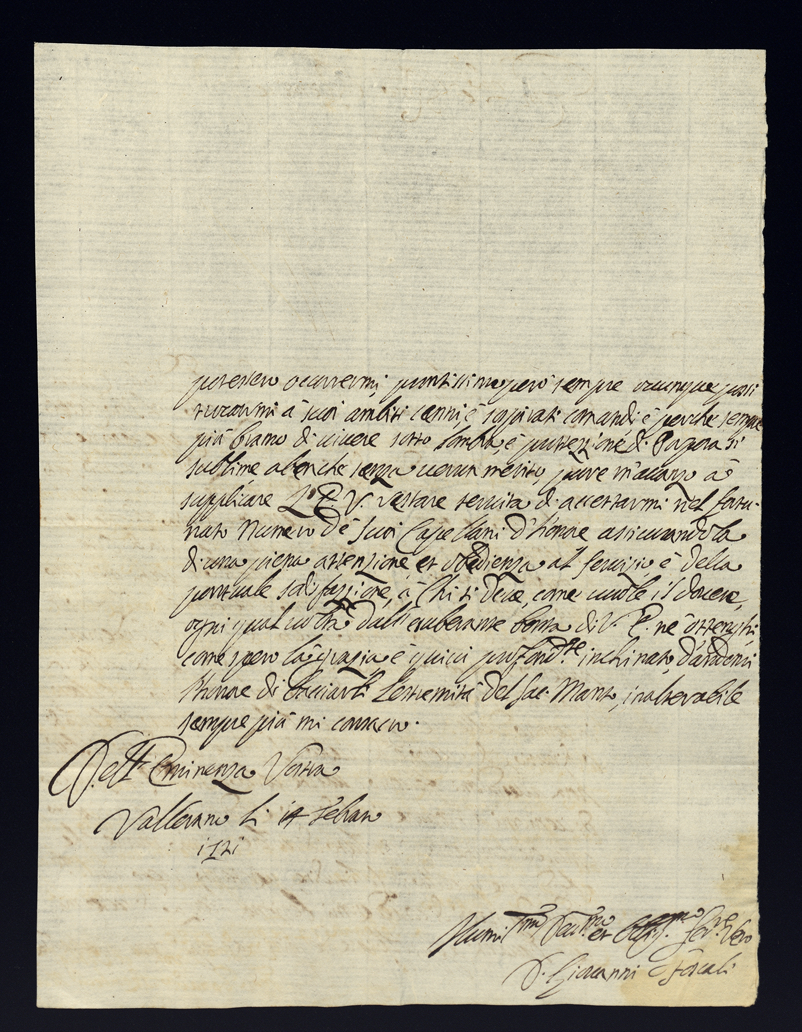 potessero occorrermi, prontissimo però sempre ovunque possi
à suoi ambiti cenni, è sospirati comandi è perche sempre
più bramo di vivere sotto l'ombra, è protezzione di Porpora si
sublime abenche senza verun merito, pure m'avanzo à
supplicare L'E. V. restare servita di accettarmi nel fortu-
nato Numero de Suoi Capellani d'honore assicurandola
di una piena attenzione et obedienza al servizio è della
pontuale sodisfazzione, à Chi si deve, come vuole il dovere,
ogni qual volta dall'esuberante bontà di V. E. ne ottenghi
come spero la grazia è quivi profond.te inchinato,
l'honore di bacciarli l'estremità del Sac. Manto, inalterabile
sempre più mi consacro.
Dell'Eminenza Vostra
Vallerano li 14 Febraro
1721
Humil.mo Dev.mo et Oblig.mo Ser.re Vero
D. Giovanni